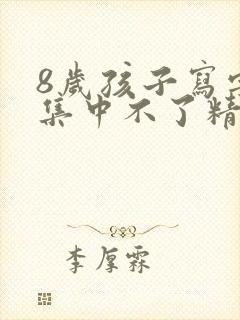 8歲孩子寫字
集中不了精
李厚霖